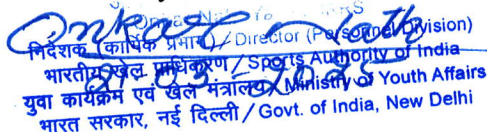 Onkar Nath
निदेशक (कार्मिक प्रभाग) / Director (Personnel Division)
भारतीय खेल प्राधिकरण / Sports Authority of India
युवा कार्यक्रम एवं खेल मंत्रालय / Ministry of Youth Affairs
भारत सरकार, नई दिल्ली / Govt. of India, New Delhi